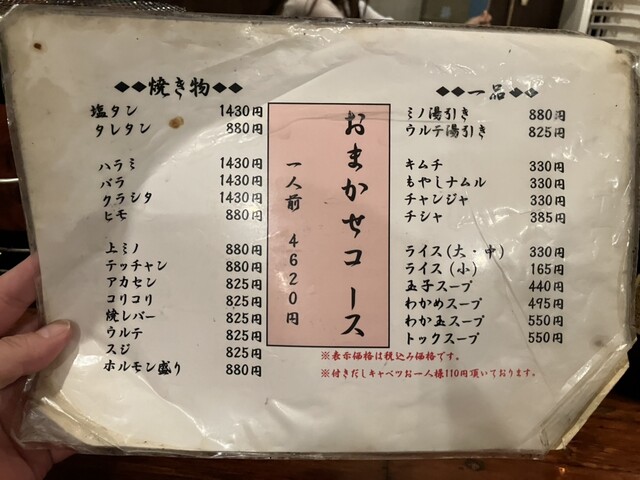 ◆◆焼き物◆◆
塩タン 1430円
タレタン 880円
ハラミ 1430円
バラ 1430円
クラシタ 1430円
ヒモ 880円
上ミノ 880円
テッチャン 880円
アカセン 825円
コリコリ 825円
焼レバー 825円
ウルテ 825円
スジ 825円
ホルモン盛り 880円
おまかせコース
一人前 4620円
◆◆一品◆◆
ミノ湯引き 880円
ウルテ湯引き 825円
キムチ 330円
もやしナムル 330円
チャンジャ 330円
チシャ 385円
ライス(大・中) 330円
ライス(小) 165円
玉子スープ 440円
わかめスープ 495円
わか玉スープ 550円
トックスープ 550円
※表示価格は税込み価格です。
※付きだしキャベツお一人様110円頂いております。